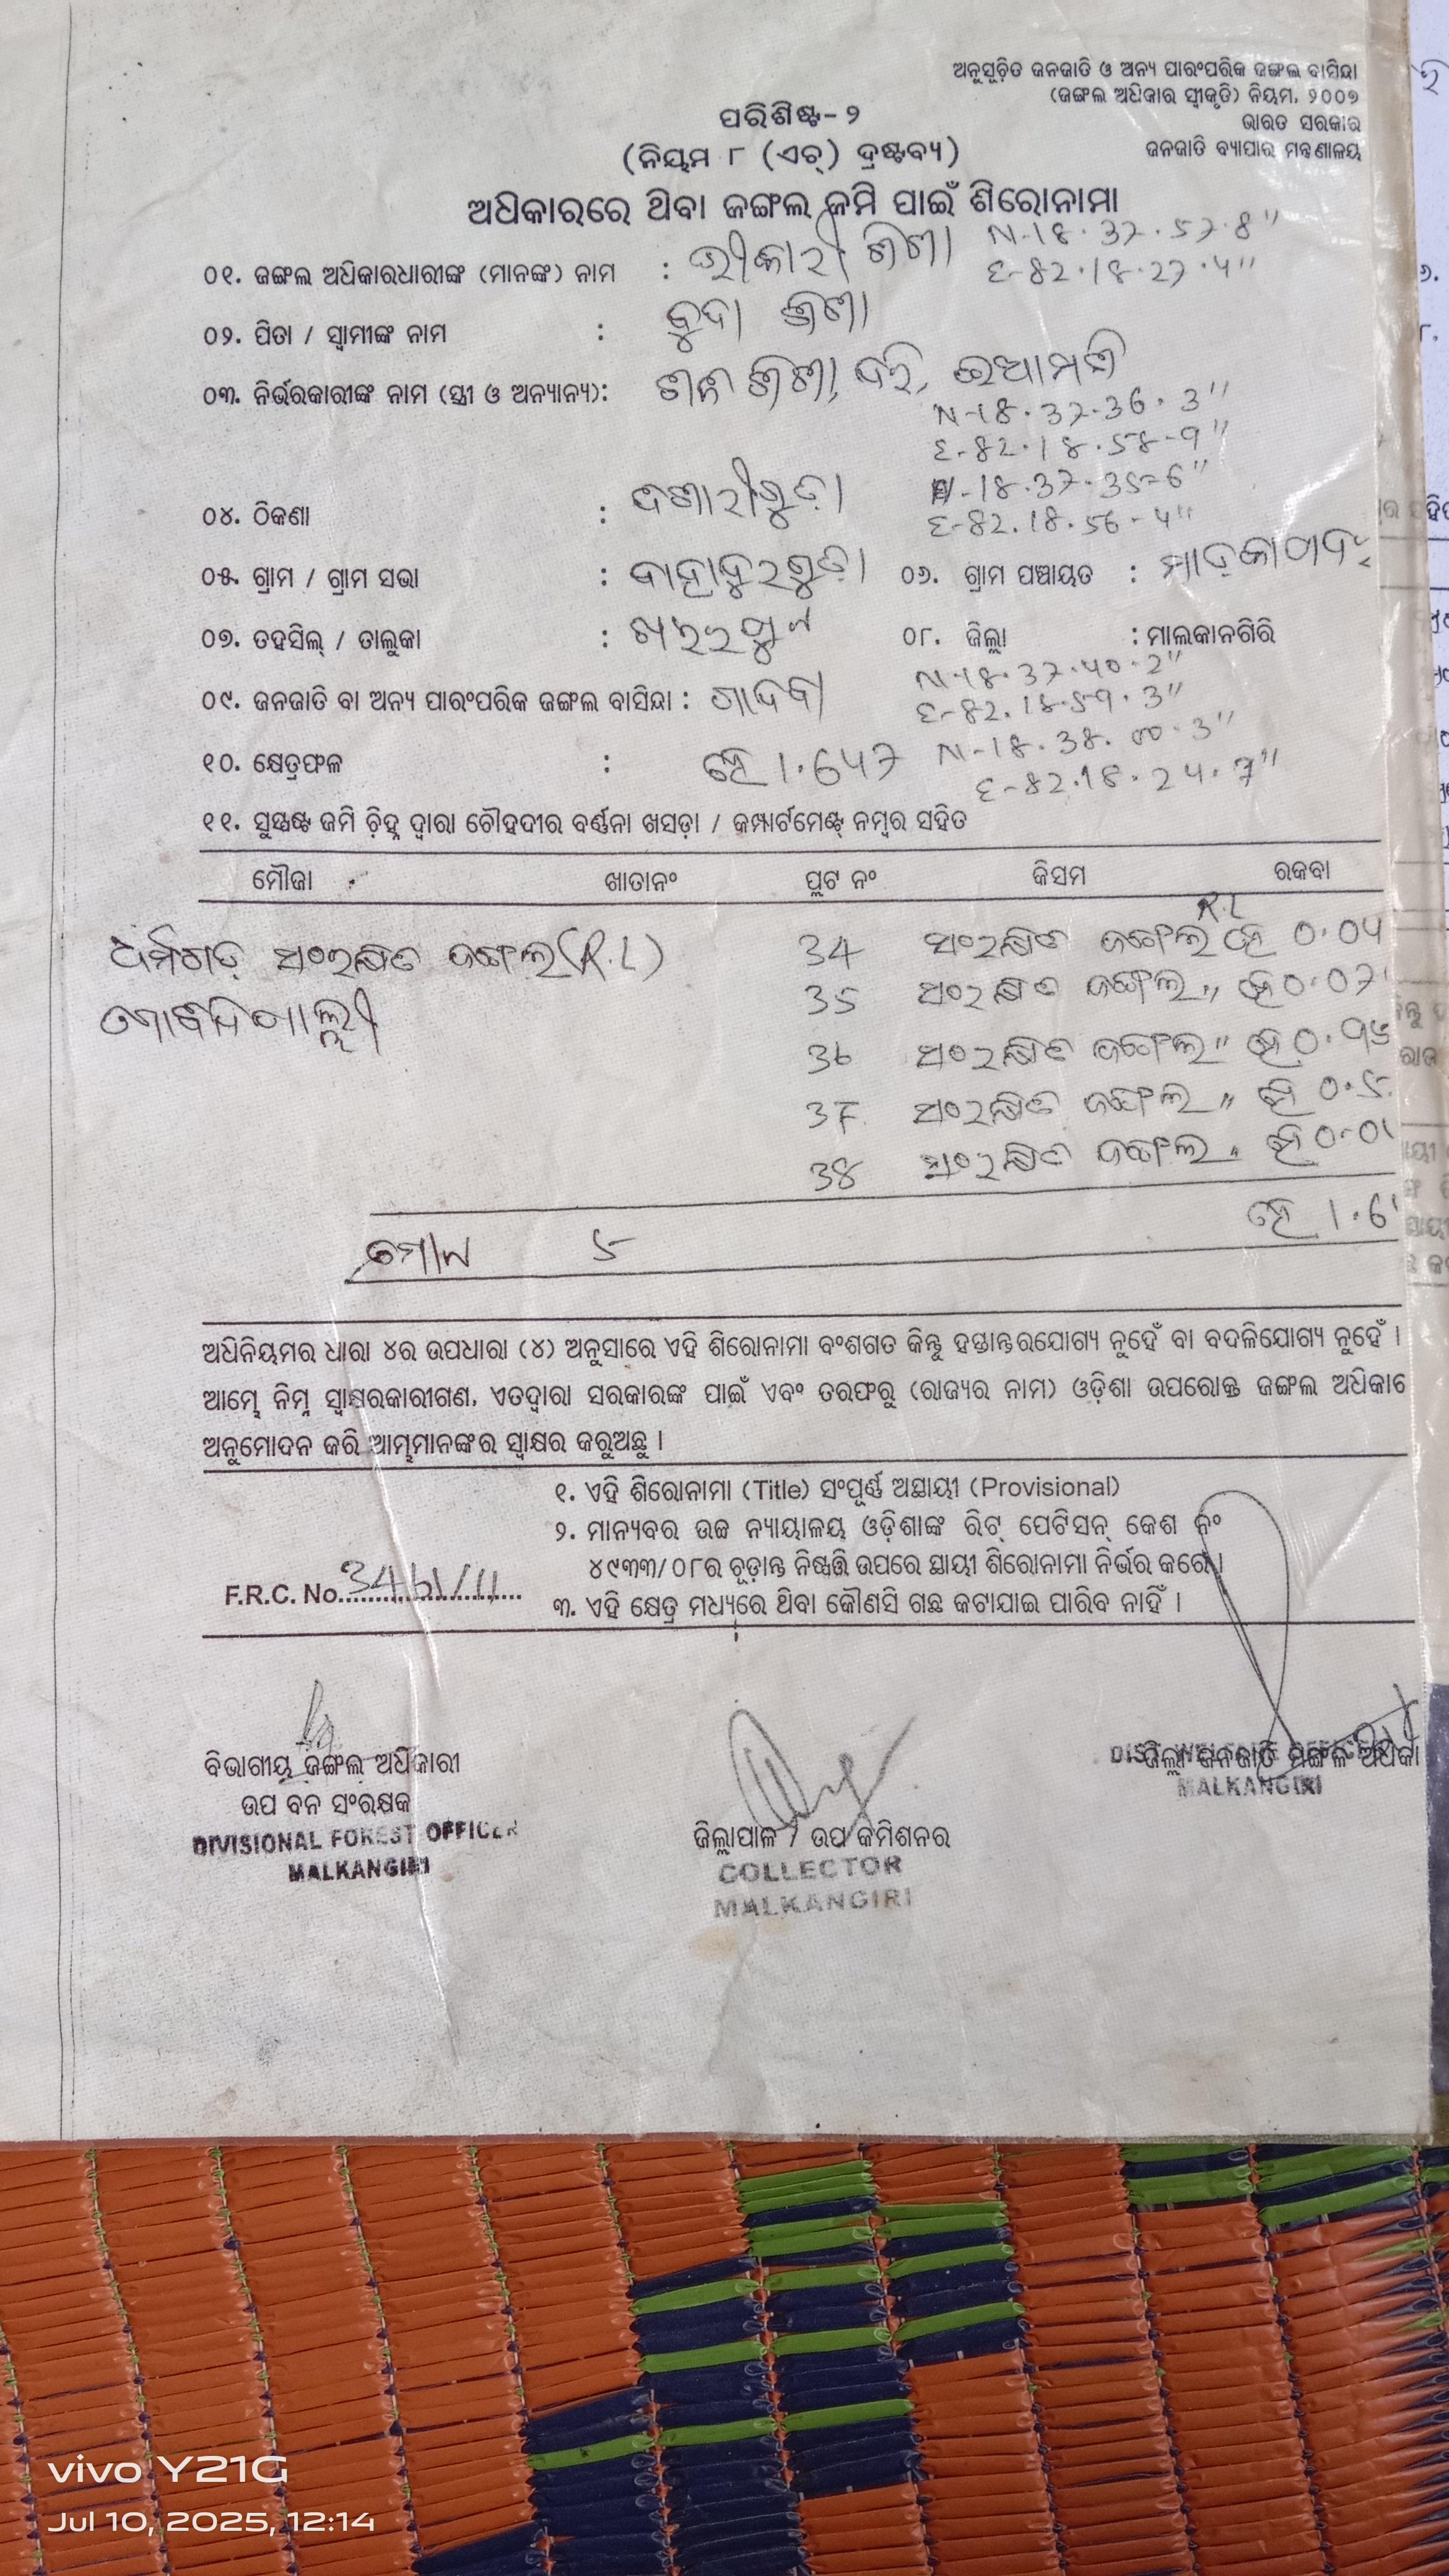 ଅନୁସୂଚିତ ଜନଜାତି ଓ ଅନ୍ୟ ପାରଂପରିକ ଜଙ୍ଗଲ ବାସିନ୍ଦା
(ଜଙ୍ଗଲ ଅଧିକାର ସ୍ୱୀକୃତି) ନିୟମ, ୨୦୦୭
ଭାରତ ସରକାର
ଜନଜାତି ବ୍ୟାପାର ମନ୍ତ୍ରଣାଳୟ
ପରିଶିଷ୍ଟ-୨
(ନିୟମ ୮ (ଏଚ୍) ଦ୍ରଷ୍ଟବ୍ୟ)
ଅଧିକାରରେ ଥିବା ଜଙ୍ଗଲ ଜମି ପାଇଁ ଶିରୋନାମା
N-18.37.57.8"
୦୧. ଜଙ୍ଗଲ ଅଧିକାରଧାରୀଙ୍କ (ମାନଙ୍କ) ନାମ :
E-82.18.27.4"
୦୨. ପିତା / ସ୍ୱାମୀଙ୍କ ନାମ : ବୁଦା
୦୩. ନିର୍ଭରକାରୀଙ୍କ ନାମ (ସ୍ତ୍ରୀ ଓ ଅନ୍ୟାନ୍ୟ):
N-18.37.36.3"
E-82.18.58-9"
N-18.37.35-6"
୦୪. ଠିକଣା :
E-82.18.56-4"
୦୫. ଗ୍ରାମ / ଗ୍ରାମ ସଭା : ୦୬. ଗ୍ରାମ ପଞ୍ଚାୟତ :
୦୭. ତହସିଲ୍ / ତାଲୁକା : ୦୮. ଜିଲ୍ଲା : ମାଲକାନଗିରି
N-18.37.40.2"
୦୯. ଜନଜାତି ବା ଅନ୍ୟ ପାରଂପରିକ ଜଙ୍ଗଲ ବାସିନ୍ଦା : ଗାଦବା
E-82.18.59.3"
N-18.38.00.3"
୧୦. କ୍ଷେତ୍ରଫଳ : ହେ 1.647
E-82.18.24.7"
୧୧. ସୁସ୍ପଷ୍ଟ ଜମି ଚ଼ିହ୍ନ ଦ୍ୱାରା ଚୌହଦୀର ବର୍ଣ୍ଣନା ଖସଡ଼ା / କମ୍ପାର୍ଟମେଣ୍ଟ୍ ନମ୍ବର ସହିତ
ମୌଜା ଖାତାନଂ ପ୍ଲଟ ନଂ କିସମ ରକବା
R.L
ସଂରକ୍ଷିତ ଜଙ୍ଗଲ (R.L) 34 ସଂରକ୍ଷିତ ଜଙ୍ଗଲ ହେ 0.04
35 ସଂରକ୍ଷିତ ଜଙ୍ଗଲ " ହେ 0.07
36 ସଂରକ୍ଷିତ ଜଙ୍ଗଲ " ହେ
37 ସଂରକ୍ଷିତ ଜଙ୍ଗଲ " ହେ 0.5
38 ସଂରକ୍ଷିତ ଜଙ୍ଗଲ " ହେ
ମୋଟ ୫ ହେ 1.6
ଅଧିନିୟମର ଧାରା ୪ର ଉପଧାରା (୪) ଅନୁସାରେ ଏହି ଶିରୋନାମା ବଂଶଗତ କିନ୍ତୁ ହସ୍ତାନ୍ତରଯୋଗ୍ୟ ନୁହେଁ ବା ବଦଳିଯୋଗ୍ୟ ନୁହେଁ ।
ଆମ୍ଭେ ନିମ୍ନ ସ୍ୱାକ୍ଷରକାରୀଗଣ, ଏତଦ୍ୱାରା ସରକାରଙ୍କ ପାଇଁ ଏବଂ ତରଫରୁ (ରାଜ୍ୟର ନାମ) ଓଡ଼ିଶା ଉପରୋକ୍ତ ଜଙ୍ଗଲ ଅଧିକାର
ଅନୁମୋଦନ କରି ଆମ୍ଭମାନଙ୍କର ସ୍ୱାକ୍ଷର କରୁଅଛୁ ।
୧. ଏହି ଶିରୋନାମା (Title) ସଂପୂର୍ଣ୍ଣ ଅସ୍ଥାୟୀ (Provisional)
୨. ମାନ୍ୟବର ଉଚ୍ଚ ନ୍ୟାୟାଳୟ ଓଡ଼ିଶାଙ୍କ ରିଟ୍ ପେଟିସନ୍ କେଶ ନଂ
୪୯୩୩/୦୮ର ଚୂଡ଼ାନ୍ତ ନିଷ୍ପତ୍ତି ଉପରେ ସ୍ଥାୟୀ ଶିରୋନାମା ନିର୍ଭର କରେ ।
F.R.C. No.
୩. ଏହି କ୍ଷେତ୍ର ମଧ୍ୟରେ ଥିବା କୌଣସି ଗଛ କଟାଯାଇ ପାରିବ ନାହିଁ ।
ବିଭାଗୀୟ ଜଙ୍ଗଲ ଅଧିକାରୀ
ଉପ ବନ ସଂରକ୍ଷକ
DIVISIONAL FOREST OFFICER
MALKANGIRI
ଜିଲ୍ଲାପାଳ / ଉପ କମିଶନର
COLLECTOR
MALKANGIRI
ଜିଲ୍ଲା ଜନଜାତି ମଙ୍ଗଳ ଅଧିକା
MALKANGIRI
vivo Y21G
Jul 10, 2025, 12:14